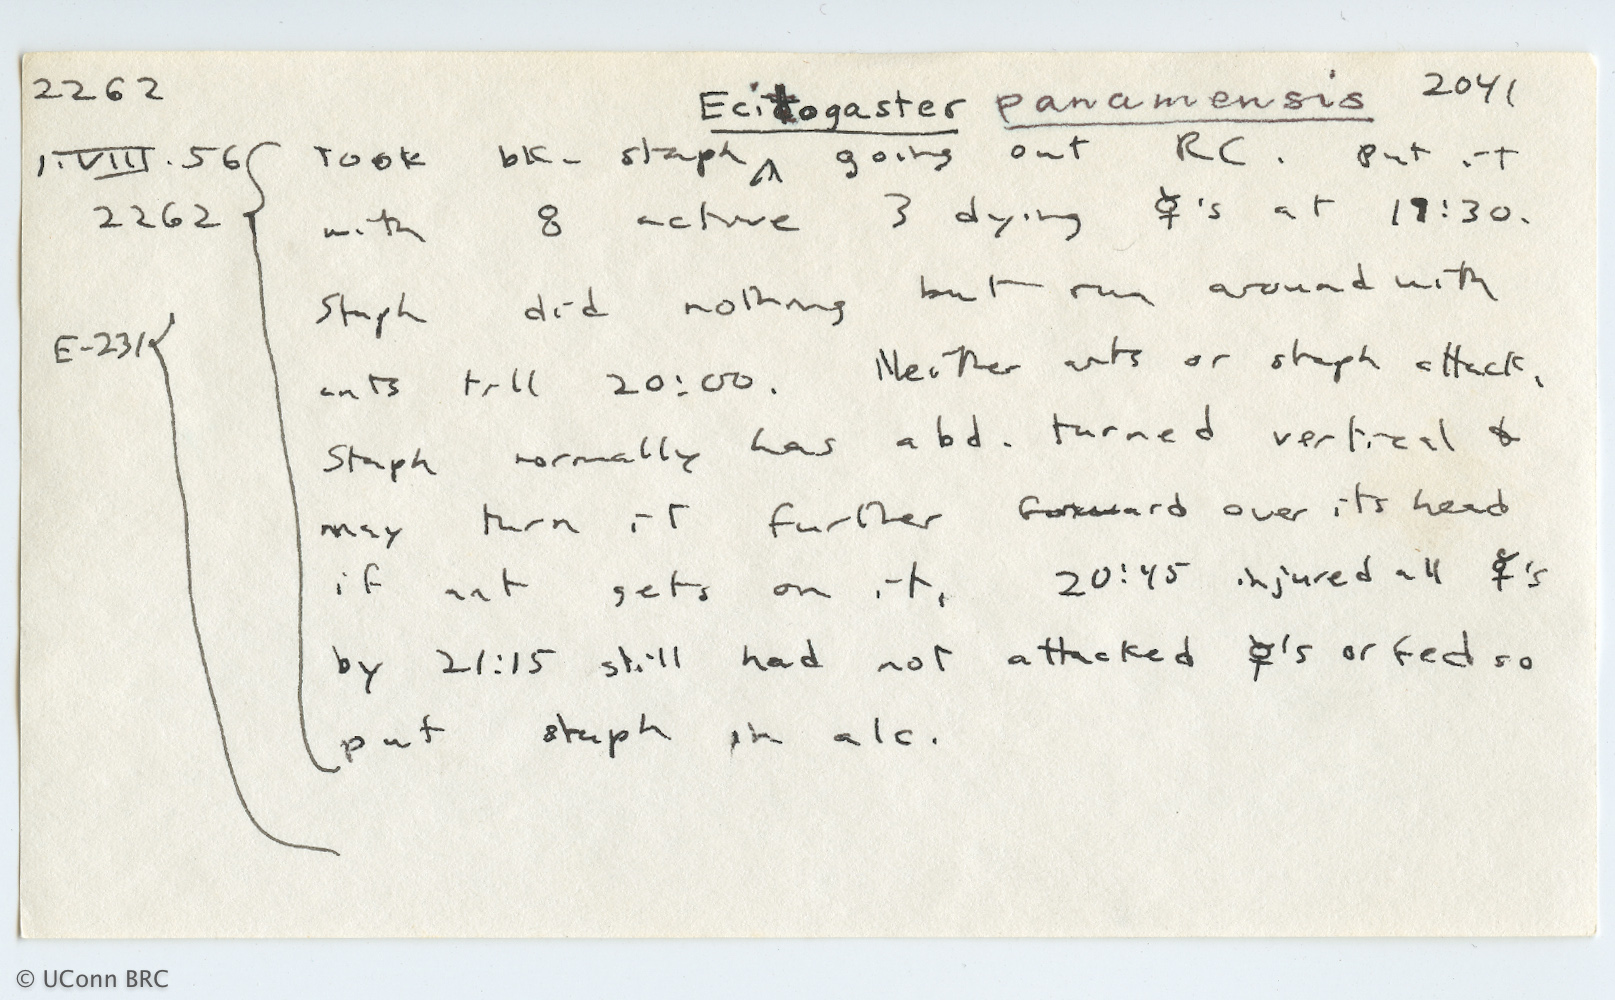 2262
Ecitogaster panamensis 2041
1.VIII.56 Took bk. staph ^ going out RC. Put it
2262 with 8 active 3 dying ☿'s at 19:30.
Staph did nothing but run around with
E-231 ants till 20:00. Neither ants or staph attack.
Staph normally has abd. turned vertical &
may turn it further forward over its head
if ant gets on it. 20:45 injured all ☿'s
by 21:15 still had not attacked ☿'s or fed so
put staph in alc.
© UConn BRC